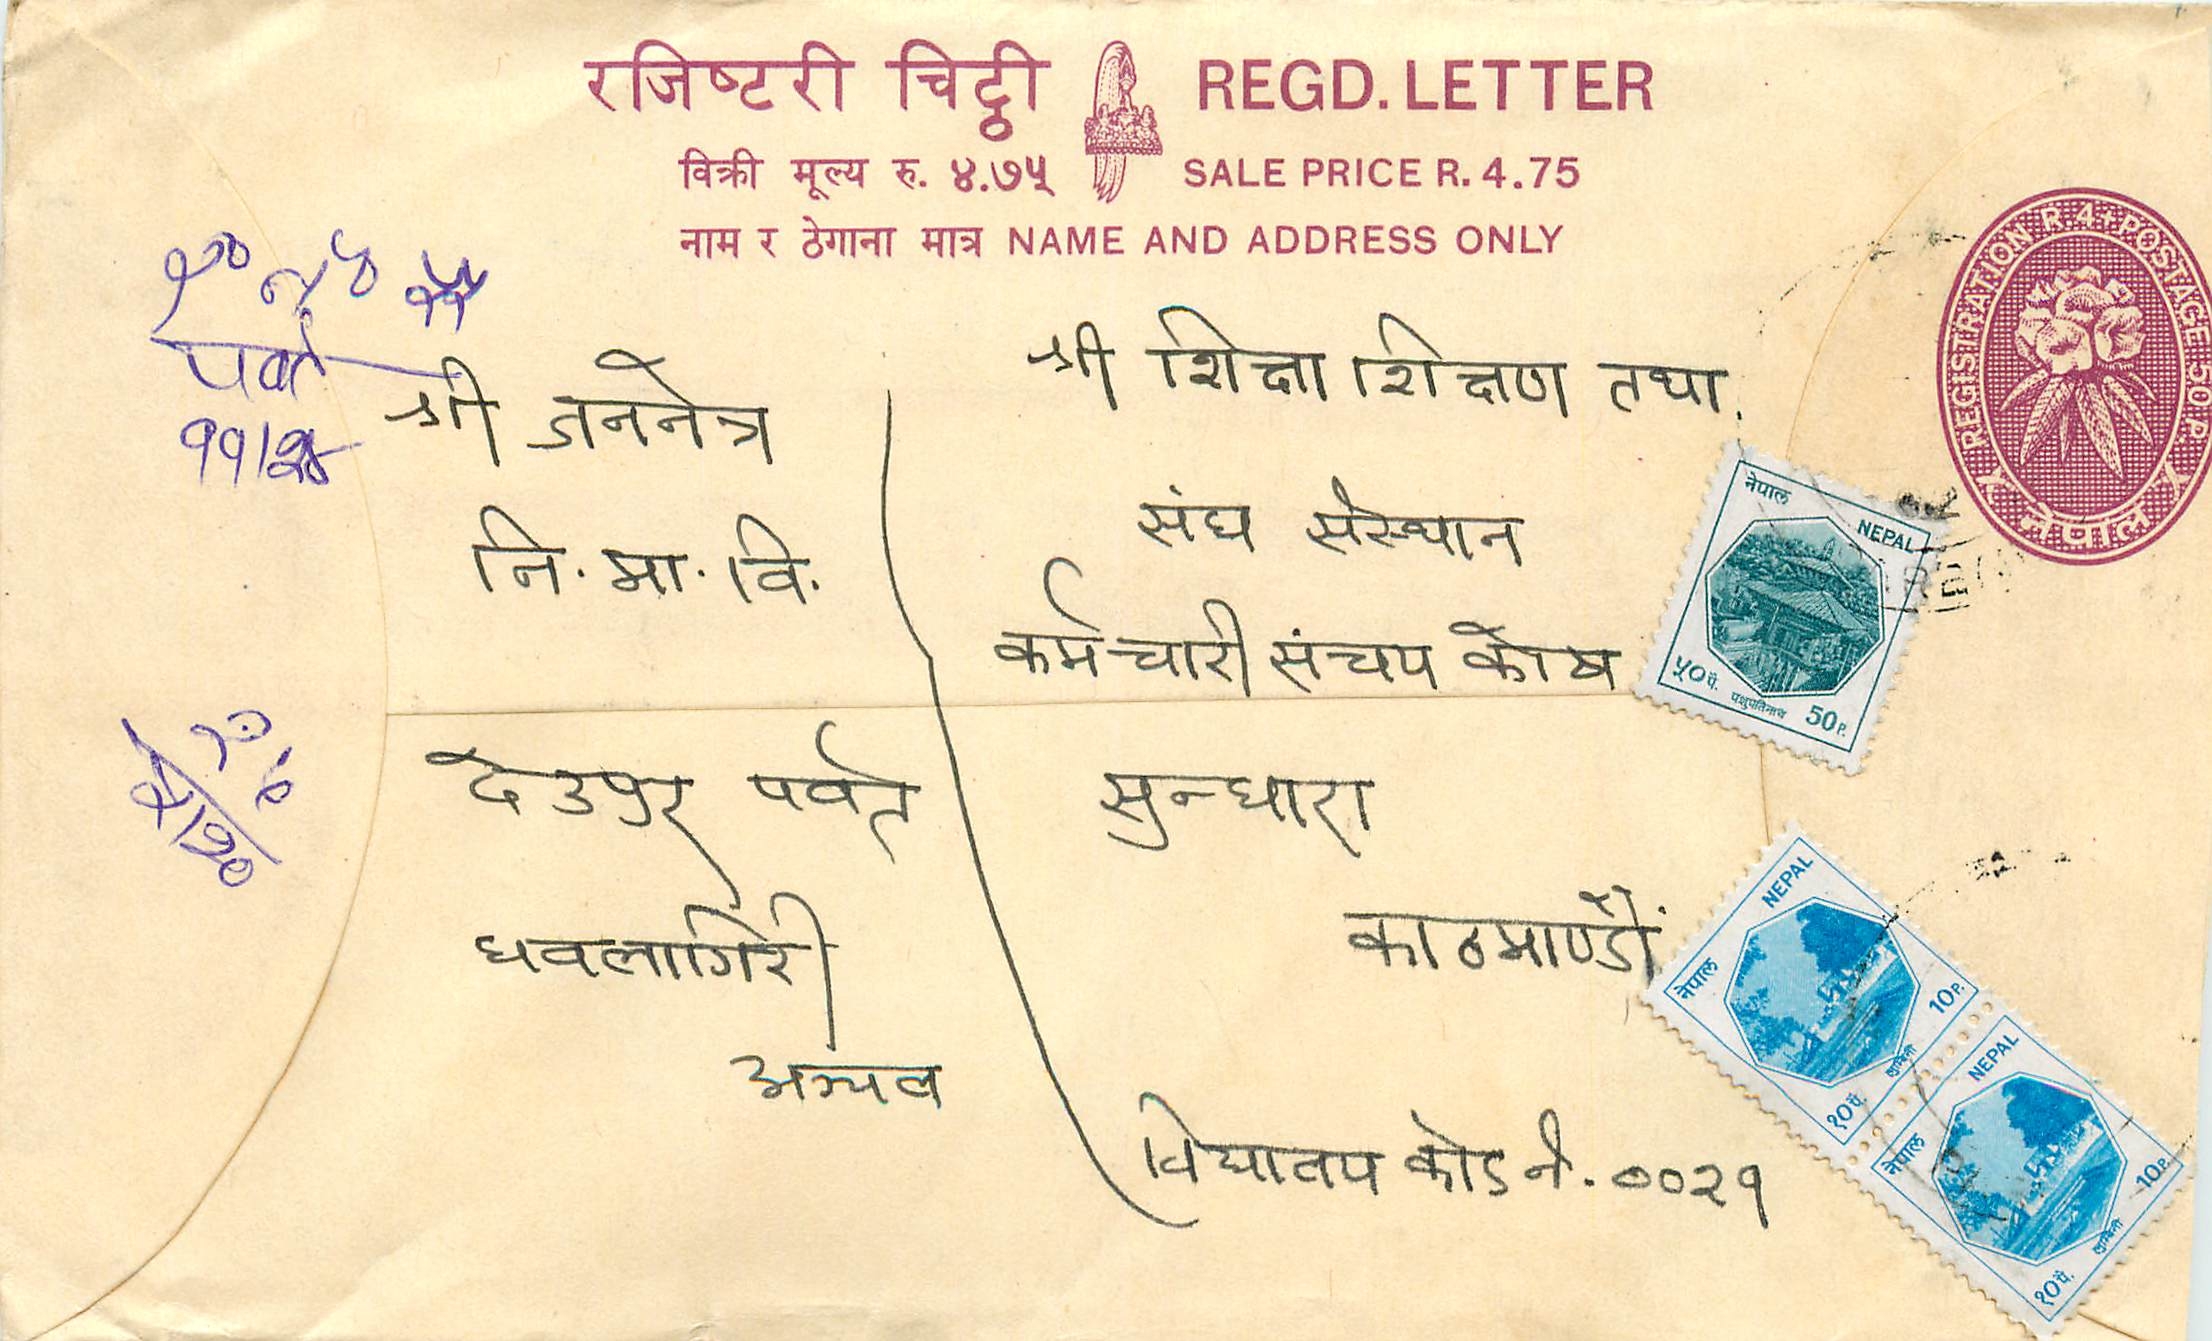 रजिष्टरी चिट्ठी REGD. LETTER
विक्री मूल्य रु. ४.७५ SALE PRICE R. 4.75
नाम र ठेगाना मात्र NAME AND ADDRESS ONLY
REGISTRATION R. 4+POSTAGE 50 P.
नेपाल
पर्वत
श्री जननेत्र
नि. मा. वि.
देउपुर पर्वत
धवलागिरी
अञ्चल
श्री शिक्षा शिक्षण तथा
संघ संस्थान
कर्मचारी संचय कोष
सुन्धारा
काठमाण्डौं
विद्यालय कोड नं. ००२१
नेपाल
NEPAL
५० पै.
पशुपतिनाथ
50 P.
NEPAL
नेपाल
10 P.
लुम्बिनी
१० पै.
NEPAL
नेपाल
10 P.
लुम्बिनी
१० पै.